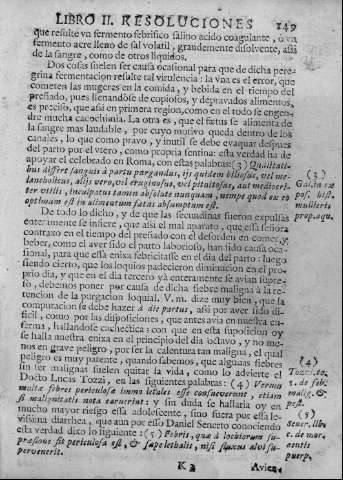 LIBRO II. RESOLUCIONES 149
que resulte vn fermento febrifico salino acido coagulante, ò vn
fermento acre lleno de sal volatil, grandemente disolvente, assi
de la sangre, como de otros liquidos.
Dos cosas suelen ser causa ocasional para que de dicha pere-
grina fermentacion resulte tal virulencia: la vna es el error, que
cometen las mugeres en la comida, y bebida en el tiempo del
preñado, pues llenandose de copiosos, y depravados alimentos,
es preciso, que assi en primera region, como en el todo se engen-
dre mucha cacochimia. La otra es, que el fœtus se alimenta de
la sangre mas laudable, por cuyo motivo queda dentro de los
canales, lo que como pravo, y inutil se debe evacuar despues
del parto por el vtero, como propria sentina: esta verdad ha de
apoyar el celebrado en Roma, con estas palabras: (3) Qualitati-
bus differt sanguis à partu purgandus, ijs quidem biliosus, vel me-
lancholicus, alijs vero, vel æruginosus, vel pituitosus, aut mediocri-
ter vtilis, inculpatus tamen absolute nunquam, vtpote quod ex eo
optimum est in alimentum fœtus absumptum est.
(3)
Galen. ex
pos. hist.
mulieris
prop. aqu.
De todo lo dicho, y de que las secundinas fueron expulsas
enteramente se infiere, que assi el mal aparato, que essa señora
contraxo en el tiempo del preñado con el desorden en comer, y
beber, como el aver sido el parto laborioso, han sido causa oca-
sional, para que essa enixa febricitasse en el dia del parto: luego
siendo cierto, que los loquios padecieron diminucion en el pro-
prio dia, y que en el dia tercero yà enteramente se avian supre-
so, debemos poner por causa de dicha fiebre maligna à la re-
tencion de la purgacion loquial. V.m. dize muy bien, que la
computacion se debe hazer à die partus, assi por aver sido di-
ficil, como por las disposiciones, que antes avia en nuestra en-
ferma, hallandose cachectica: con que en esta suposicion oy
se halla nuestra enixa en el principio del dia octavo, y no me-
nos en grave peligro, por ser la calentura tan maligna, el qual
peligro es muy patente, quando sabemos, que algunas fiebres
sin ser malignas suelen quitar la vida, como lo advierte el
Docto Lucas Tozzi, en las siguientes palabras: (4) Verum
multæ febres periculosæ immo letales esse consueverunt, etiam
si malignitatis nota caruerint: y sin duda se hallaria oy en
mucho mayor riesgo essa adolescente, sino fuera por essa le-
vissima diarrhea, que aun por esso Daniel Senerto conociendo
esta verdad dixo lo siguiente: (5) Febris, quæ à lochiorum su-
præsione fit periculosa est, & sæpe lethalis, nisi fluxus alvi su-
pervenerit.
(4)
Tozzi, to.
2. de feb.
malig. &
pest.
(5)
Sener. lib.
de mor.
aentis
puerp.
K 3 Avien-